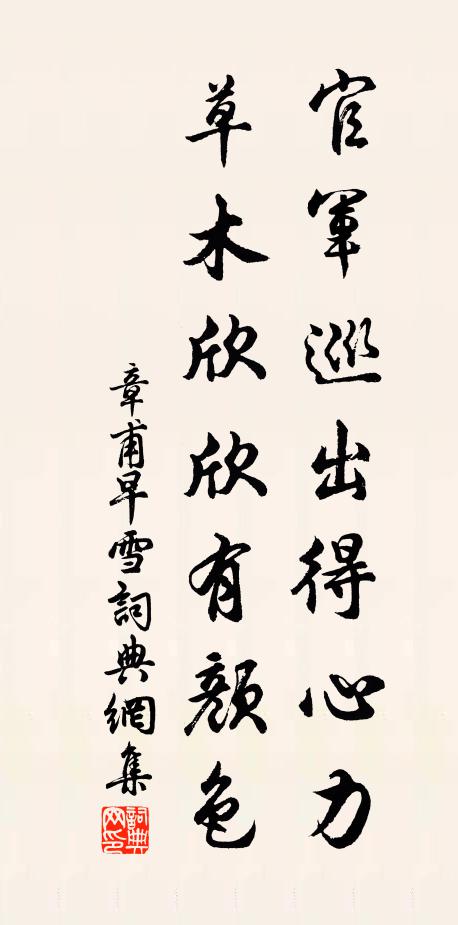 官軍巡出得心力
草木欣欣有顏色
章甫早雪詞典網集
詞典
網印